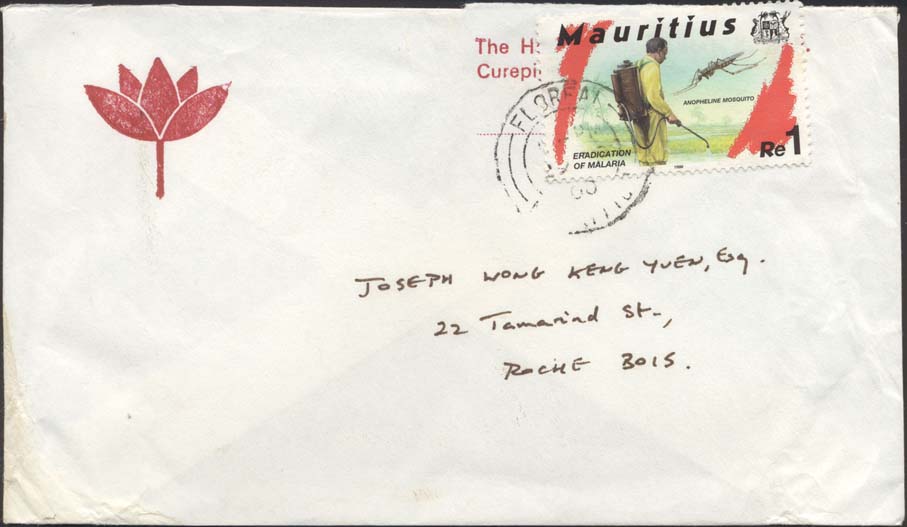 The H
Curepi
Mauritius
ANOPHELINE MOSQUITO
ERADICATION
OF MALARIA
1999
Re1
FLOREAL
JOSEPH WONG KENG YUEN, Esq.
22 Tamarind St.,
ROCHE BOIS.